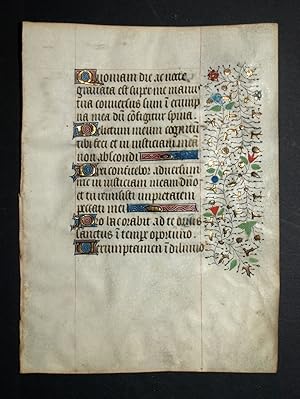 Quoniam die ac nocte
gravata est super me manus
tua conversus sum in erumpna
mea dum configitur spina
Delictum meum cognitu
tibi feci et iniusticiam mea
non abscondi
Dixi confitebor adversum
me iniusticiam meam dno
et tu remisisti impietatem
peccati mei
Pro hac orabit ad te omnis
sanctus in tempe oportuno
Verumptamen in diluvio